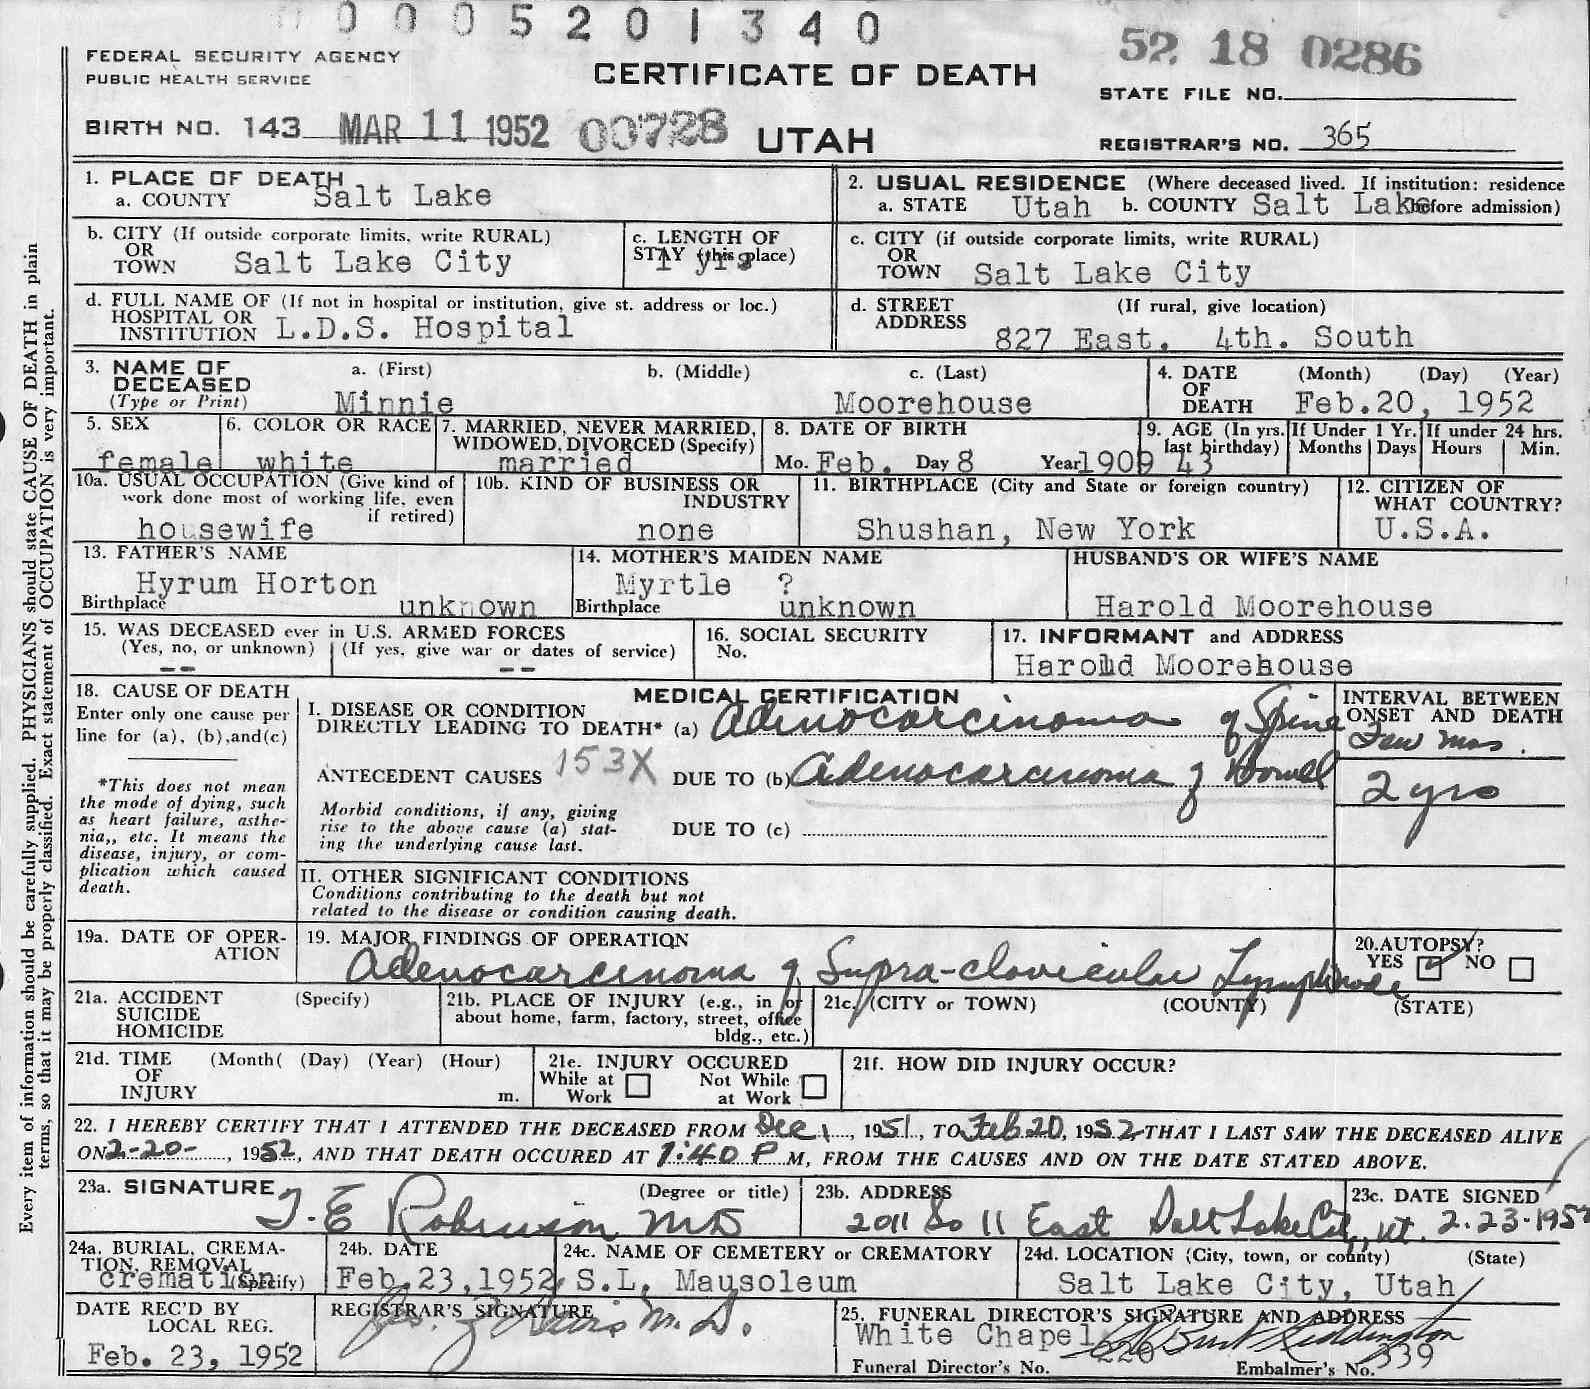 0005201340
52 18 0286
FEDERAL SECURITY AGENCY
PUBLIC HEALTH SERVICE
CERTIFICATE OF DEATH
STATE FILE NO.
BIRTH NO. 143 MAR 11 1952 00728 UTAH
REGISTRAR'S NO. 365
1. PLACE OF DEATH
a. COUNTY Salt Lake
2. USUAL RESIDENCE (Where deceased lived. If institution: residence before admission)
a. STATE Utah b. COUNTY Salt Lake
b. CITY (If outside corporate limits, write RURAL)
OR
TOWN Salt Lake City
c. LENGTH OF
STAY (this place)
1 yrs
c. CITY (if outside corporate limits, write RURAL)
OR
TOWN Salt Lake City
d. FULL NAME OF (If not in hospital or institution, give st. address or loc.)
HOSPITAL OR
INSTITUTION L.D.S. Hospital
d. STREET (If rural, give location)
ADDRESS
827 East, 4th. South
3. NAME OF a. (First) b. (Middle) c. (Last)
DECEASED
(Type or Print) Minnie Moorehouse
4. DATE (Month) (Day) (Year)
OF
DEATH Feb.20, 1952
5. SEX
female
6. COLOR OR RACE
white
7. MARRIED, NEVER MARRIED,
WIDOWED, DIVORCED (Specify)
married
8. DATE OF BIRTH
Mo. Feb. Day 8 Year 1909
9. AGE (In yrs.
last birthday)
43
If Under 1 Yr.
Months Days
If under 24 hrs.
Hours Min.
10a. USUAL OCCUPATION (Give kind of
work done most of working life, even
if retired)
housewife
10b. KIND OF BUSINESS OR
INDUSTRY
none
11. BIRTHPLACE (City and State or foreign country)
Shushan, New York
12. CITIZEN OF
WHAT COUNTRY?
U.S.A.
13. FATHER'S NAME
Hyrum Horton
Birthplace unknown
14. MOTHER'S MAIDEN NAME
Myrtle ?
Birthplace unknown
HUSBAND'S OR WIFE'S NAME
Harold Moorehouse
15. WAS DECEASED ever in U.S. ARMED FORCES
(Yes, no, or unknown) (If yes, give war or dates of service)
-- --
16. SOCIAL SECURITY
No.
17. INFORMANT and ADDRESS
Harold Moorehouse
18. CAUSE OF DEATH
Enter only one cause per
line for (a), (b),and(c)
*This does not mean
the mode of dying, such
as heart failure, asthe-
nia,, etc. It means the
disease, injury, or com-
plication which caused
death.
MEDICAL CERTIFICATION
I. DISEASE OR CONDITION
DIRECTLY LEADING TO DEATH* (a) Adenocarcinoma of Spine
ANTECEDENT CAUSES 153X DUE TO (b) Adenocarcinoma of Bowel
Morbid conditions, if any, giving
rise to the above cause (a) stat-
ing the underlying cause last.
DUE TO (c)
INTERVAL BETWEEN
ONSET AND DEATH
Few mos.
2 yrs
II. OTHER SIGNIFICANT CONDITIONS
Conditions contributing to the death but not
related to the disease or condition causing death.
19a. DATE OF OPER-
ATION
19. MAJOR FINDINGS OF OPERATION
Adenocarcinoma of Supra-clavicular Lymphnode
20.AUTOPSY?
YES NO
21a. ACCIDENT (Specify)
SUICIDE
HOMICIDE
21b. PLACE OF INJURY (e.g., in or
about home, farm, factory, street, office
bldg., etc.)
21c. (CITY or TOWN) (COUNTY) (STATE)
21d. TIME (Month( (Day) (Year) (Hour)
OF
INJURY m.
21e. INJURY OCCURED
While at Work Not While at Work
21f. HOW DID INJURY OCCUR?
22. I HEREBY CERTIFY THAT I ATTENDED THE DECEASED FROM Dec 1, 1951, TO Feb 20, 1952 THAT I LAST SAW THE DECEASED ALIVE
ON 2-20-, 1952, AND THAT DEATH OCCURED AT 1:40 P M, FROM THE CAUSES AND ON THE DATE STATED ABOVE.
23a. SIGNATURE (Degree or title)
T. E Robinson MD
23b. ADDRESS
2011 So 11 East Salt Lake City, Ut.
23c. DATE SIGNED
2-23-1952
24a. BURIAL, CREMA-
TION, REMOVAL
(Specify)
cremation
24b. DATE
Feb.23,1952
24c. NAME OF CEMETERY or CREMATORY
S.L. Mausoleum
24d. LOCATION (City, town, or county) (State)
Salt Lake City, Utah
DATE REC'D BY
LOCAL REG.
Feb. 23, 1952
REGISTRAR'S SIGNATURE
M.D.
25. FUNERAL DIRECTOR'S SIGNATURE AND ADDRESS
White Chapel
Funeral Director's No. 220 Embalmer's No. 339
Every item of information should be carefully supplied. PHYSICIANS should state CAUSE OF DEATH in plain
terms, so that it may be properly classified. Exact statement of OCCUPATION is very important.